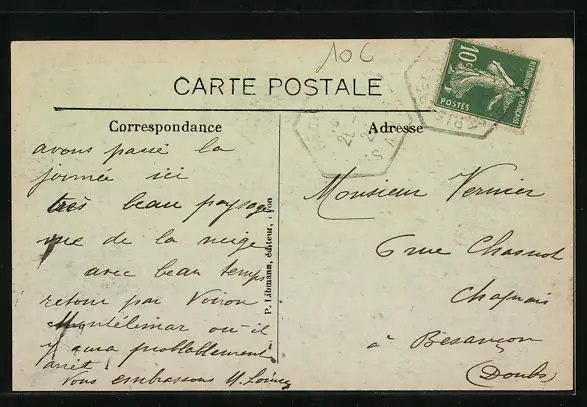 10 c
10c
POSTES
REPUBLIQUE FRANÇAISE
CARTE POSTALE
Correspondance
Adresse
avons passé la
journée ici
très beau paysage
vue de la neige
avec beau temps
retour par Voiron
Montélimar où il
y aura problablement
arrêt
Vous embrassons
P. Libmann, éditeur, Lyon
Monsieur Vernier
6 rue Chasnot
Chaprais
à Besançon
(Doubs)